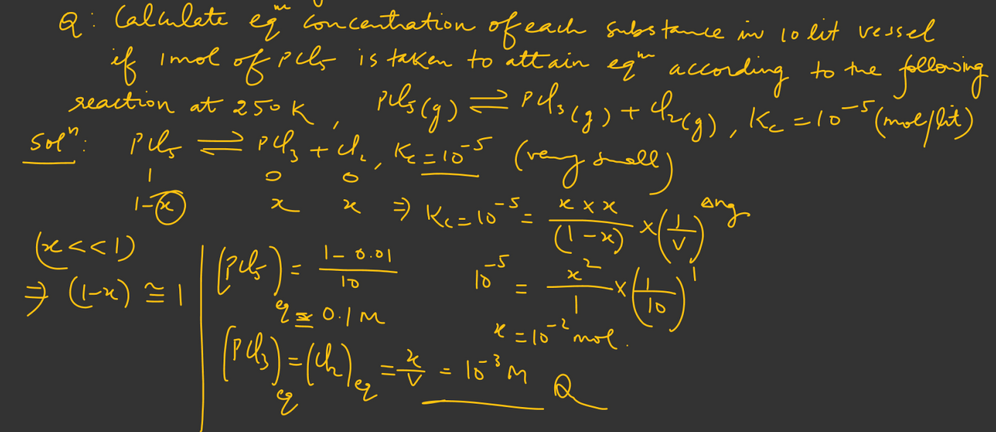 Q: Calculate eqᵐ concentration of each substance in 10 lit vessel
if 1mol of PCl₅ is taken to attain eqᵐ according to the following
reaction at 250K, PCl₅(g) ⇌ PCl₃(g) + Cl₂(g), Kc = 10⁻⁵ (mol/lit)
Solⁿ: PCl₅ ⇌ PCl₃ + Cl₂, Kc = 10⁻⁵ (very small)
1 0 0
1-x x x ⇒ Kc = 10⁻⁵ = x × x / (1-x) × (1/V)^Δng
(x << 1)
⇒ (1-x) ≅ 1
10⁻⁵ = x²/1 × (1/10)¹
x = 10⁻² mol.
[PCl₅]eq = 1-0.01 / 10
≅ 0.1 M
[PCl₃]eq = [Cl₂]eq = x/V = 10⁻³ M